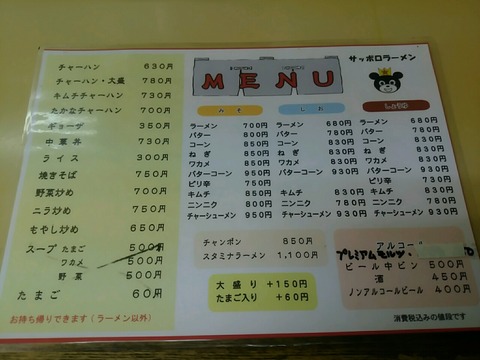 チャーハン 630円
チャーハン・大盛 780円
キムチチャーハン 730円
たかなチャーハン 700円
ギョーザ 350円
中華丼 730円
ライス 300円
焼きそば 750円
野菜炒め 700円
ニラ炒め 750円
もやし炒め 650円
スープ たまご 500円
ワカメ 500円
野菜 500円
たまご 60円
お持ち帰りできます(ラーメン以外)
MENU
サッポロラーメン
みそ
ラーメン 700円
バター 800円
コーン 850円
ねぎ 850円
ワカメ 850円
バターコーン 950円
ピリ辛 750円
キムチ 850円
ニンニク 800円
チャーシューメン 950円
しお
ラーメン 680円
バター 780円
コーン 830円
ねぎ 830円
ワカメ 830円
バターコーン 930円
キムチ 830円
ニンニク 780円
チャーシューメン 930円
ラーメン 680円
バター 780円
コーン 830円
ねぎ 830円
ワカメ 830円
バターコーン 930円
ピリ辛 730円
キムチ 830円
ニンニク 780円
チャーシューメン 930円
チャンポン 850円
スタミナラーメン 1,100円
大盛り +150円
たまご入り +60円
アルコール
プレミアムモルツ
ビール中ビン 500円
酒 450円
ノンアルコールビール 400円
消費税込みの値段です